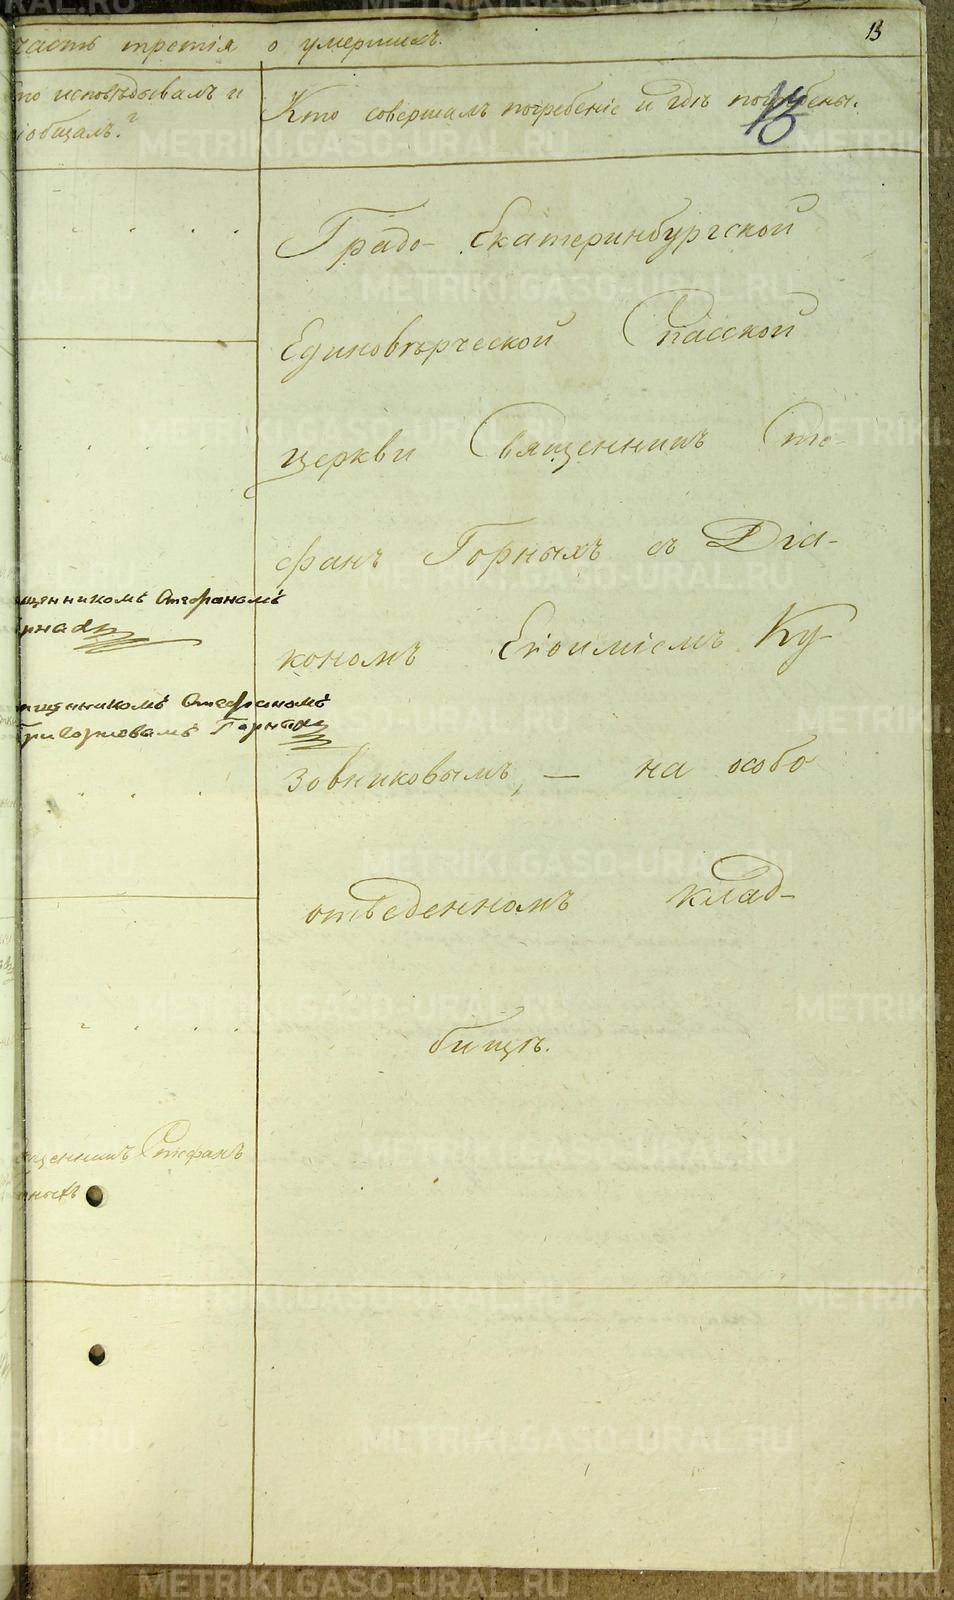 часть третiя о умершихъ.
13
то исповѣдывалъ и
iобщалъ?
Кто совершалъ погребенiе и гдѣ погребены.
13
Градо-Екатеринбургской
Единовѣрческой Спасской
церкви Священникъ Сте-
фанъ Горныхъ съ Дiа-
кономъ Евѳимiемъ Ку-
зовниковымъ, — на особо
отведенномъ клад-
бищѣ.
щенникомъ Стефаномъ
рныхъ
щенникомъ Стефаномъ
Григорьевымъ Горныхъ
щенникъ Стефанъ
ныхъ
METRIKI.GASO-URAL.RU